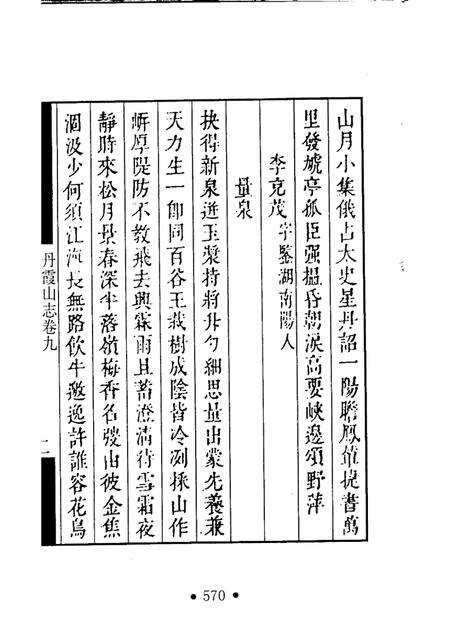 山月小集俄占太史星丹詔一陽瞻鳳値捷書萬
里發虓亭孤臣强搵昏朝淚高要峽邊頌野萍
李充茂字鑒湖南陽人
量泉
抉得新泉迸玉漿持將升勺細思量出蒙先養兼
天力生一卽同百谷王栽樹成陰皆冷冽採山作
岍厚隄防不教飛去與霖雨且蓄澄淸待雪霜夜
靜時來松月景春深半落嶺梅香名發由彼金焦
涸汲少何須江海長無路飲牛邀逸許誰容花鳥
丹霞山志卷九
二
570